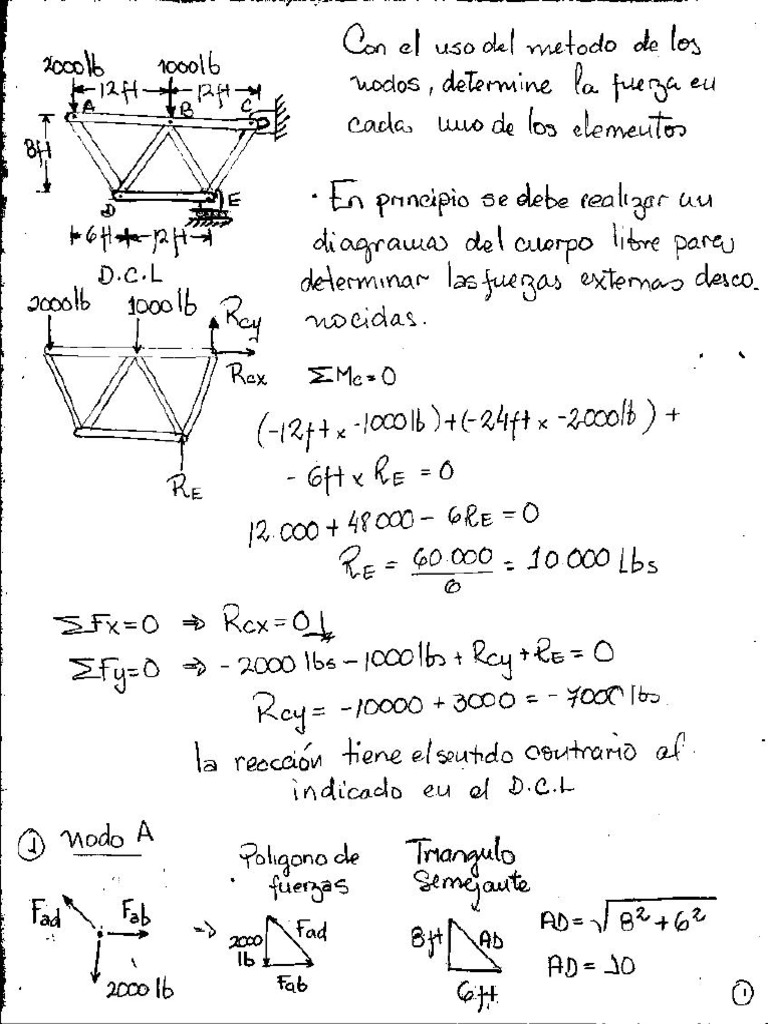 2000lb 1000lb
12ft 12ft
A B C
8ft
D E
6ft 12ft
Con el uso del metodo de los
nodos, determine la fuerza en
cada uno de los elementos
· En principio se debe realizar un
diagrama del cuerpo libre para
determinar las fuerzas externas desco
nocidas.
D.C.L
2000lb 1000lb Rcy
Rcx
RE
ΣMc=0
(-12ft x -1000lb)+(-24ft x -2000lb) +
- 6ft x RE = 0
12.000 + 48000 - 6RE = 0
RE = 60.000 = 10.000 Lbs
6
ΣFx=0 ⇒ Rcx=0
ΣFy=0 ⇒ -2000 lbs -1000 lbs + Rcy + RE = 0
Rcy = -10000 + 3000 = -7000 lbs
la reacción tiene el sentido contrario al
indicado en el D.C.L
1 nodo A
Poligono de
fuerzas
Triangulo
Semejante
Fad Fab
2000 lb
⇒
2000
lb
Fad
Fab
8ft AD
6ft
AD = √8² + 6²
AD = 10
1